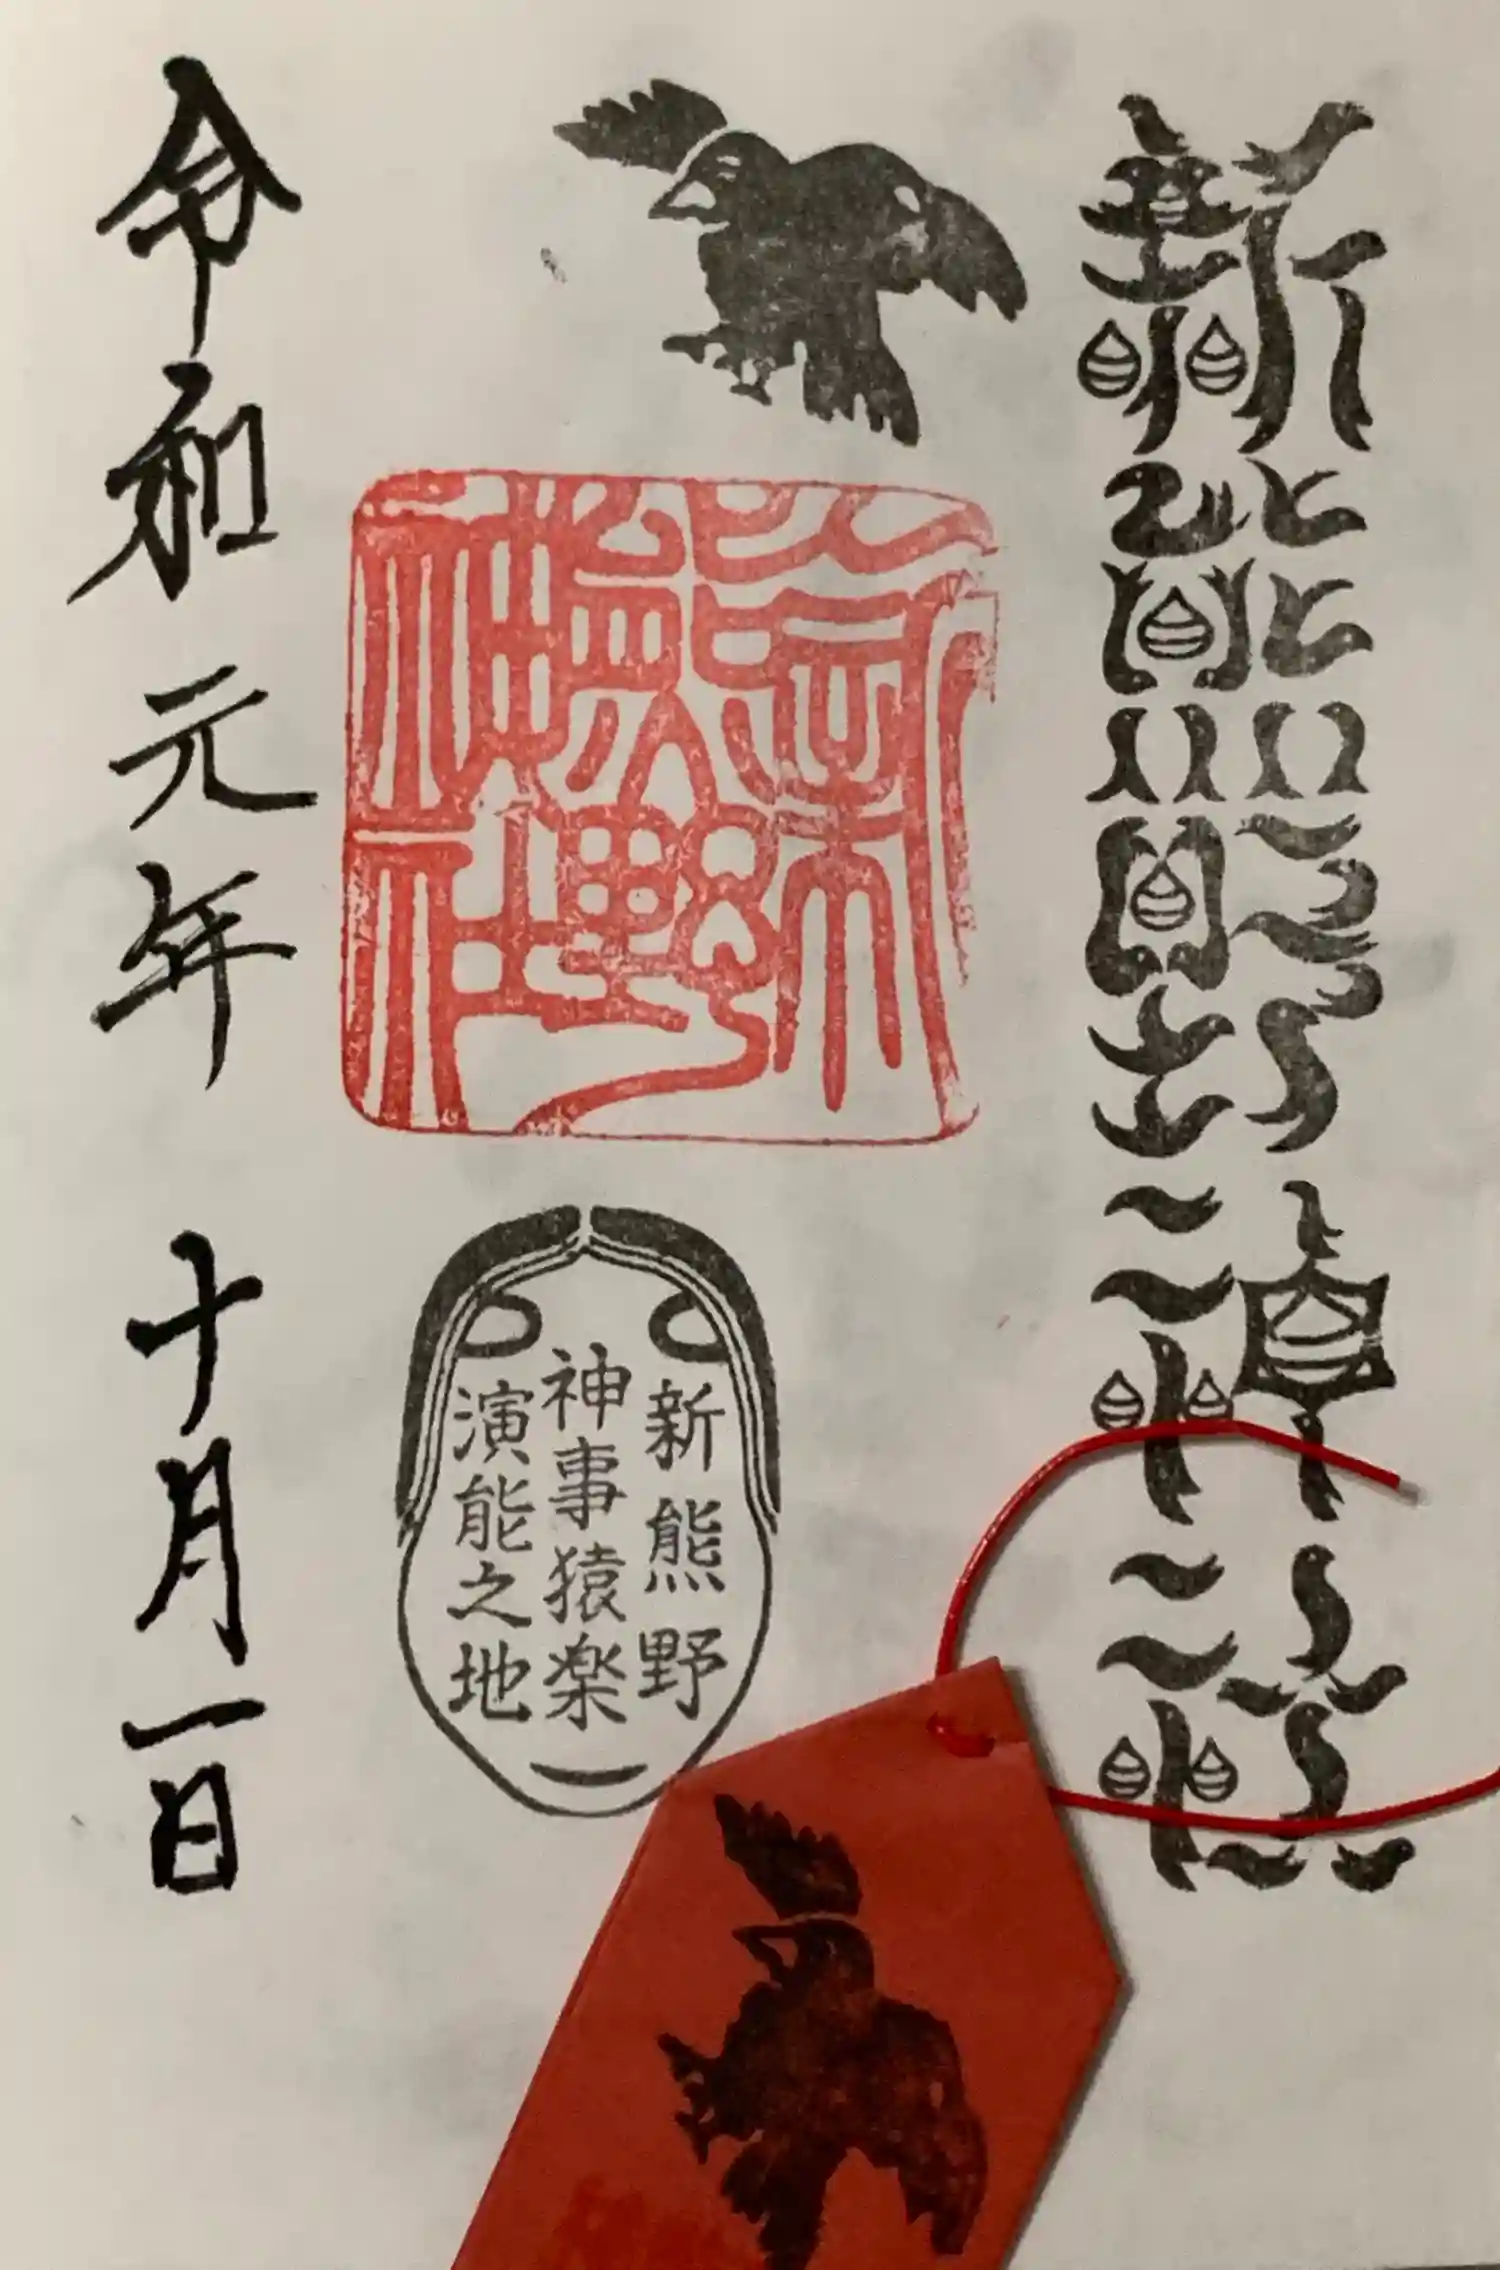 新熊野神社
新熊野神社
新熊野
神事猿楽
演能之地
令和元年十月一日